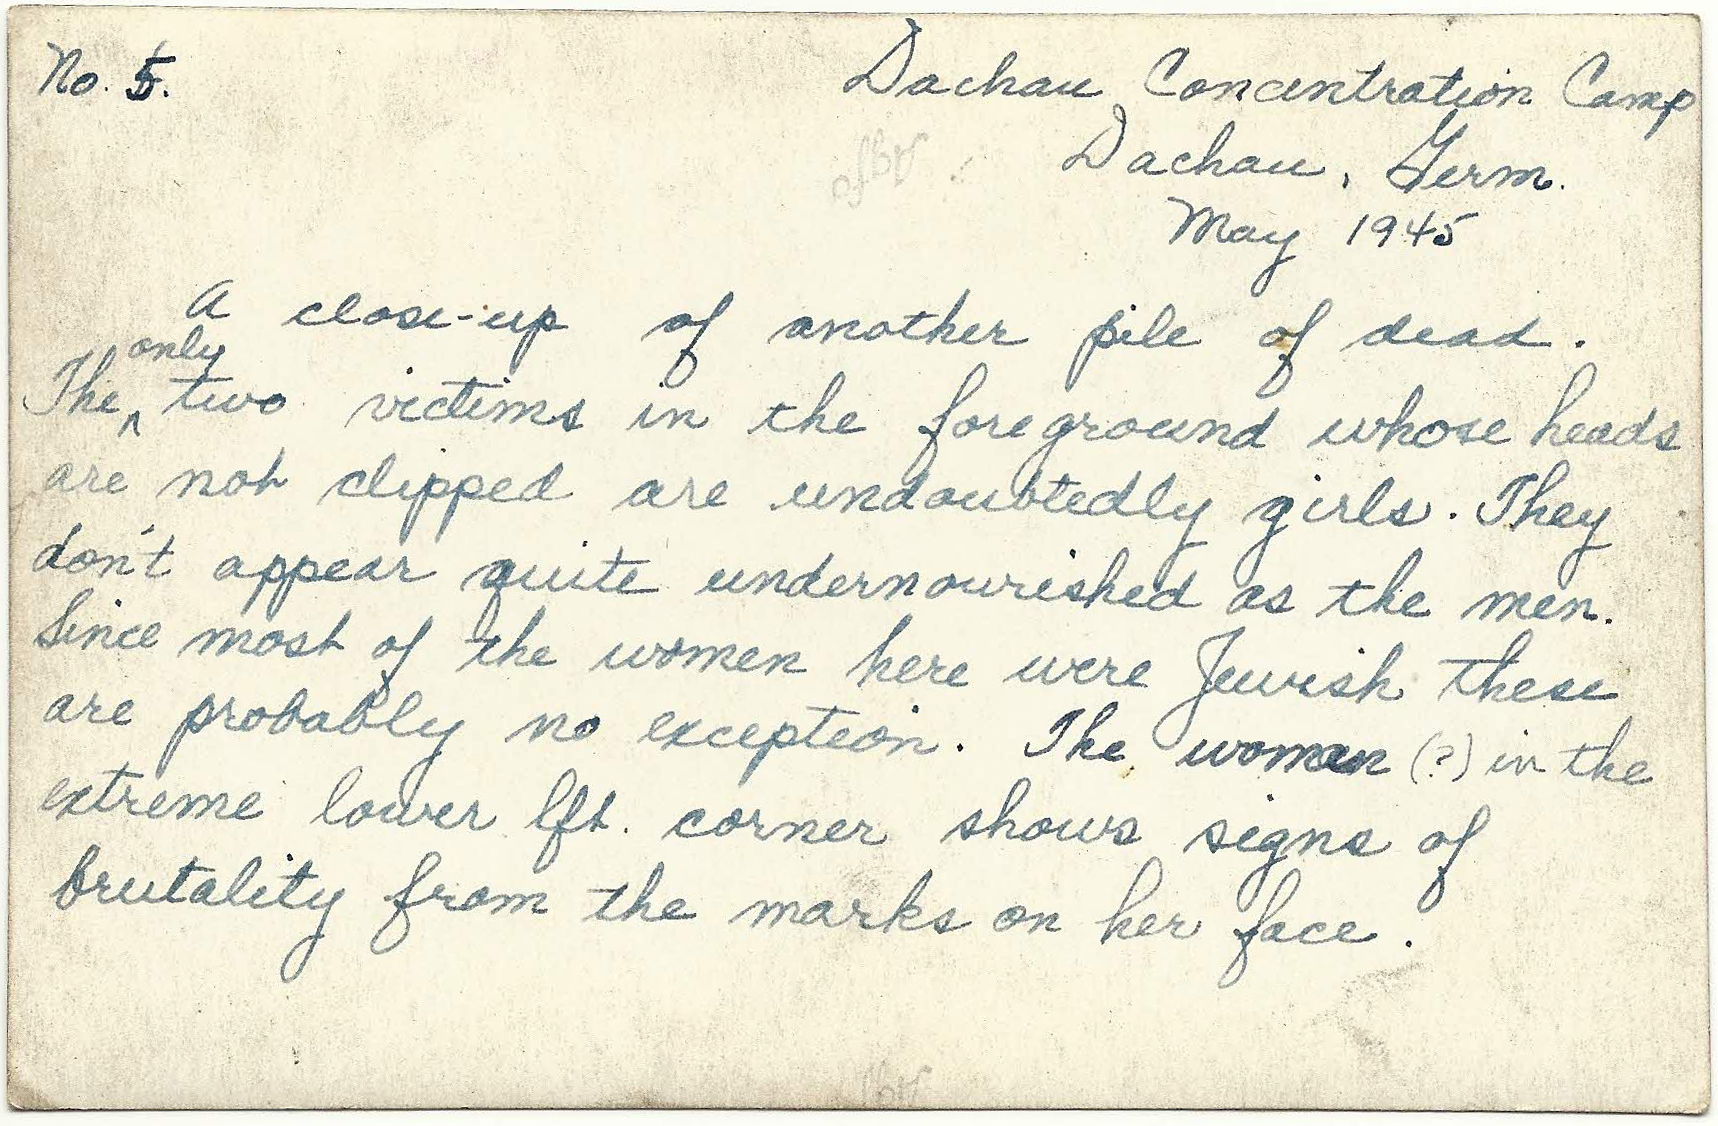 No. 5.
Dachau Concentration Camp
Dachau, Germ.
May 1945
A close-up of another pile of dead.
only
The ^ two victims in the foreground whose heads
are not clipped are undoubtedly girls. They
don't appear quite undernourished as the men.
Since most of the women here were Jewish these
are probably no exception. The woman (?) in the
extreme lower lft. corner shows signs of
brutality from the marks on her face.